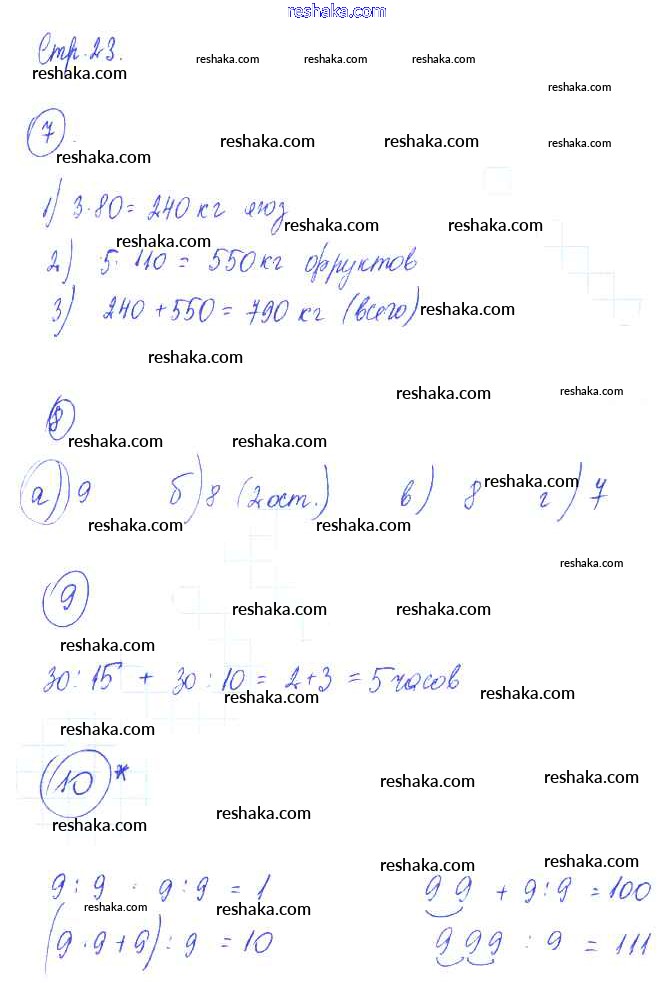 reshaka.com
Стр. 23.
reshaka.com reshaka.com reshaka.com reshaka.com
reshaka.com
7
reshaka.com reshaka.com reshaka.com
reshaka.com
1) 3·80 = 240 кг ягод
reshaka.com reshaka.com
reshaka.com
2) 5·110 = 550 кг фруктов
3) 240 + 550 = 790 кг (всего) reshaka.com
reshaka.com
reshaka.com reshaka.com
8
reshaka.com reshaka.com
а) 9 б) 8 (2 ост.) в) 8 г) 7
reshaka.com
reshaka.com reshaka.com reshaka.com
reshaka.com
9
reshaka.com reshaka.com
reshaka.com
30 : 15 + 30 : 10 = 2 + 3 = 5 часов
reshaka.com reshaka.com
reshaka.com
10*
reshaka.com reshaka.com
reshaka.com reshaka.com
reshaka.com reshaka.com
9 : 9 · 9 : 9 = 1 99 + 9 : 9 = 100
reshaka.com reshaka.com
(9 · 9 + 9) : 9 = 10 999 : 9 = 111